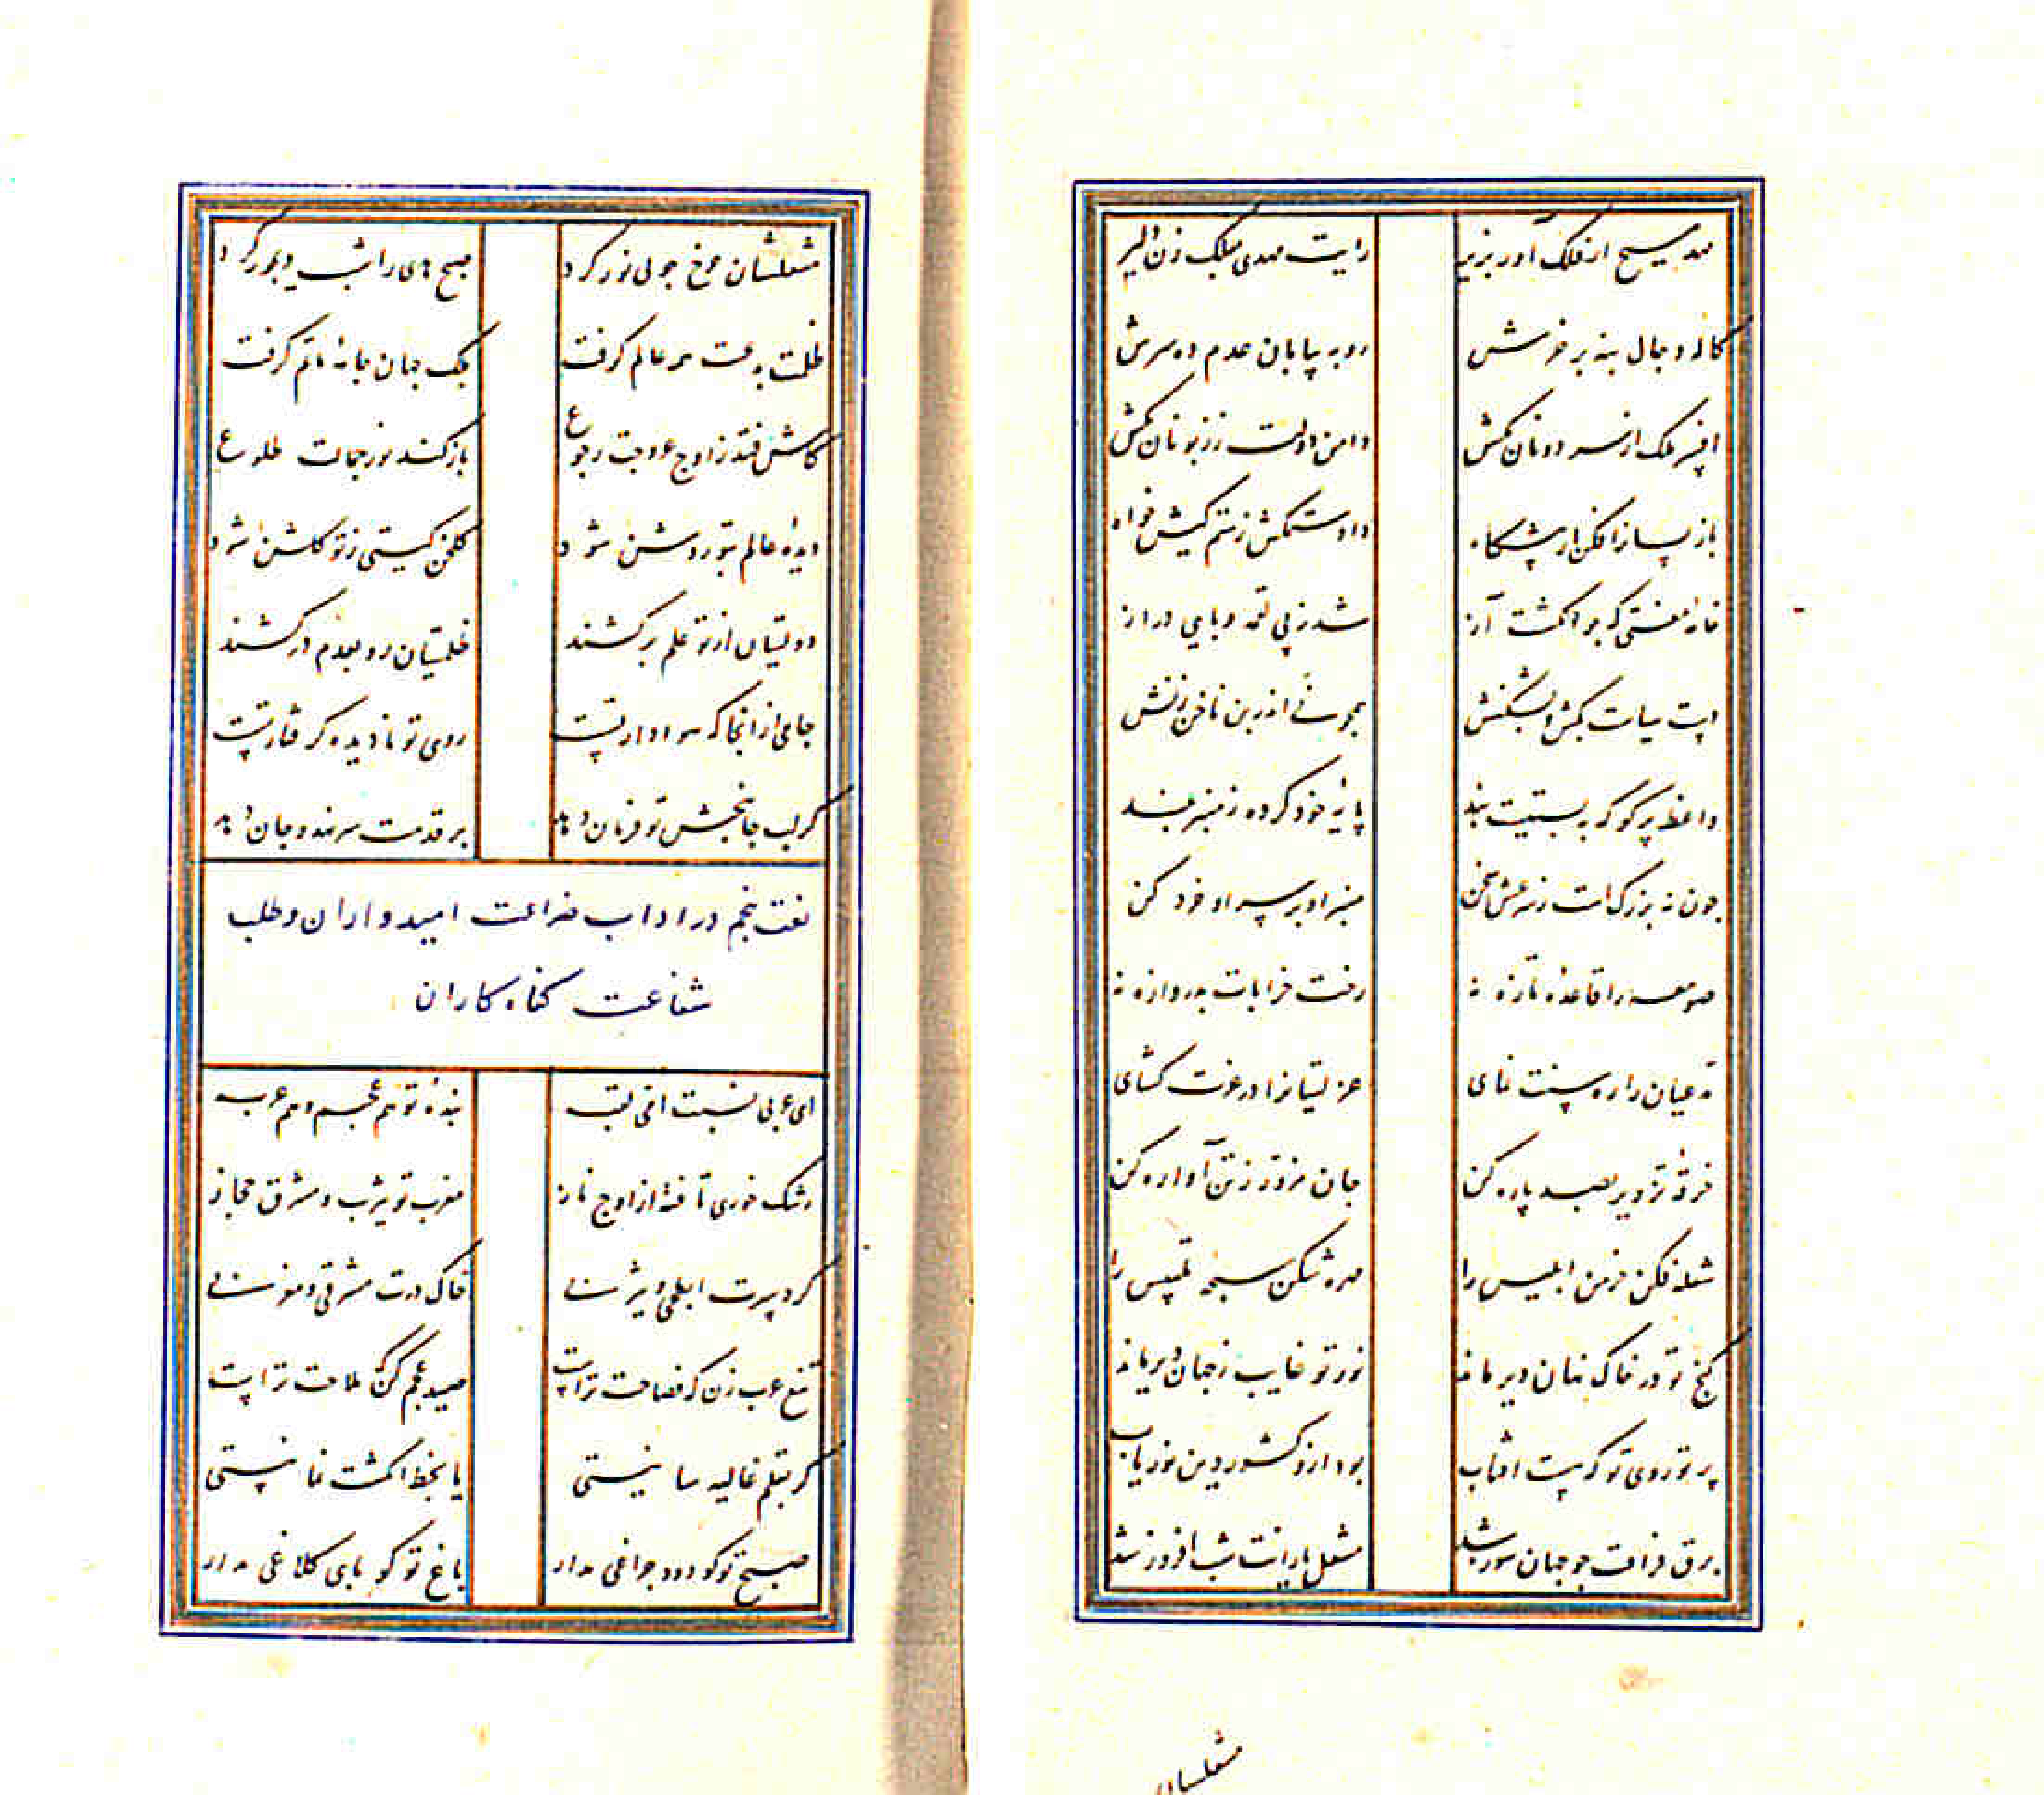 مهد مسیح از فلک آور بزیر
رایت مهدی بفلک زن دلیر
کاله دجال بنه بر خرش
رو به بیابان عدم ده سرش
افسر ملک از سر دونان بکش
دامن دولت ز زبونان بکش
باز پسان را فکن از پیشگاه
داد ستمکش ز ستم کیش خواه
خامهٔ مفتی که چو انگشت آز
شد ز پی لقمه ربایی دراز
دست سیاست بکش و بشکنش
همچو نی اندر بن ناخن زنش
واعظ پرگو که به پستیست بند
پایهٔ خود کرده ز منبر بلند
چون نه بزرگ است ز شرعش سخن
منبر او بر سر او خرد کن
صومعه را قاعدهٔ تازه نه
رخت خرابات به دروازه نه
بدعیان را ره سنت نمای
عزلتیانرا در عزت کشای
خرقهٔ تزویر بصد پاره کن
جان مزور ز تن آواره کن
شعله فکن خرمن ابلیس را
مهره شکن سبحهٔ تلبیس را
گنج تو در خاک نهان دیر ماند
نور تو غایب ز جهان دیر ماند
پرتو روی تو که هست آفتاب
بود ازو کشور دین نوریاب
برق فراقت چو جهان سوز شد
مشعل یارانت شب افروز شد
مشعلشان
مشعلشان چرخ چو بی نور کرد
صبح هدی را شب دیجور کرد
ظلمت بدعت همه عالم گرفت
بلک جهان جامهٔ ماتم گرفت
کاش فتد ز اوج عروجت رجوع
باز کند نور جمالت طلوع
دیدهٔ عالم بتو روشن شود
گلخن گیتی ز تو گلشن شود
دولتیان از تو علم بر کشند
ظلمتیان رو بعدم در کشند
جامی از آنجا که هوادار تست
روی تو نادیده گرفتار تست
گر لب جانبخش تو فرمان دهد
بر قدمت سر نهد و جان دهد
نعت پنجم در اداب ضراعت امیدواران و طلب
شفاعت کناه کاران
ای عربی نسبت امی لقب
بندهٔ تو هم عجم و هم عرب
رشک خوری تافته از اوج ناز
مغرب تو یثرب و مشرق حجاز
گرد سرت ابطحی و یثربی
خاک درت مشرقی و مغربی
تیغ عرب زن که فصاحت تراست
صید عجم کن که ملاحت تراست
گر بقلم غالیه سا نیستی
یا بخط انگشت نما نیستی
صبح تو گو دود چراغی مدار
باغ تو گو پای کلاغی مدار